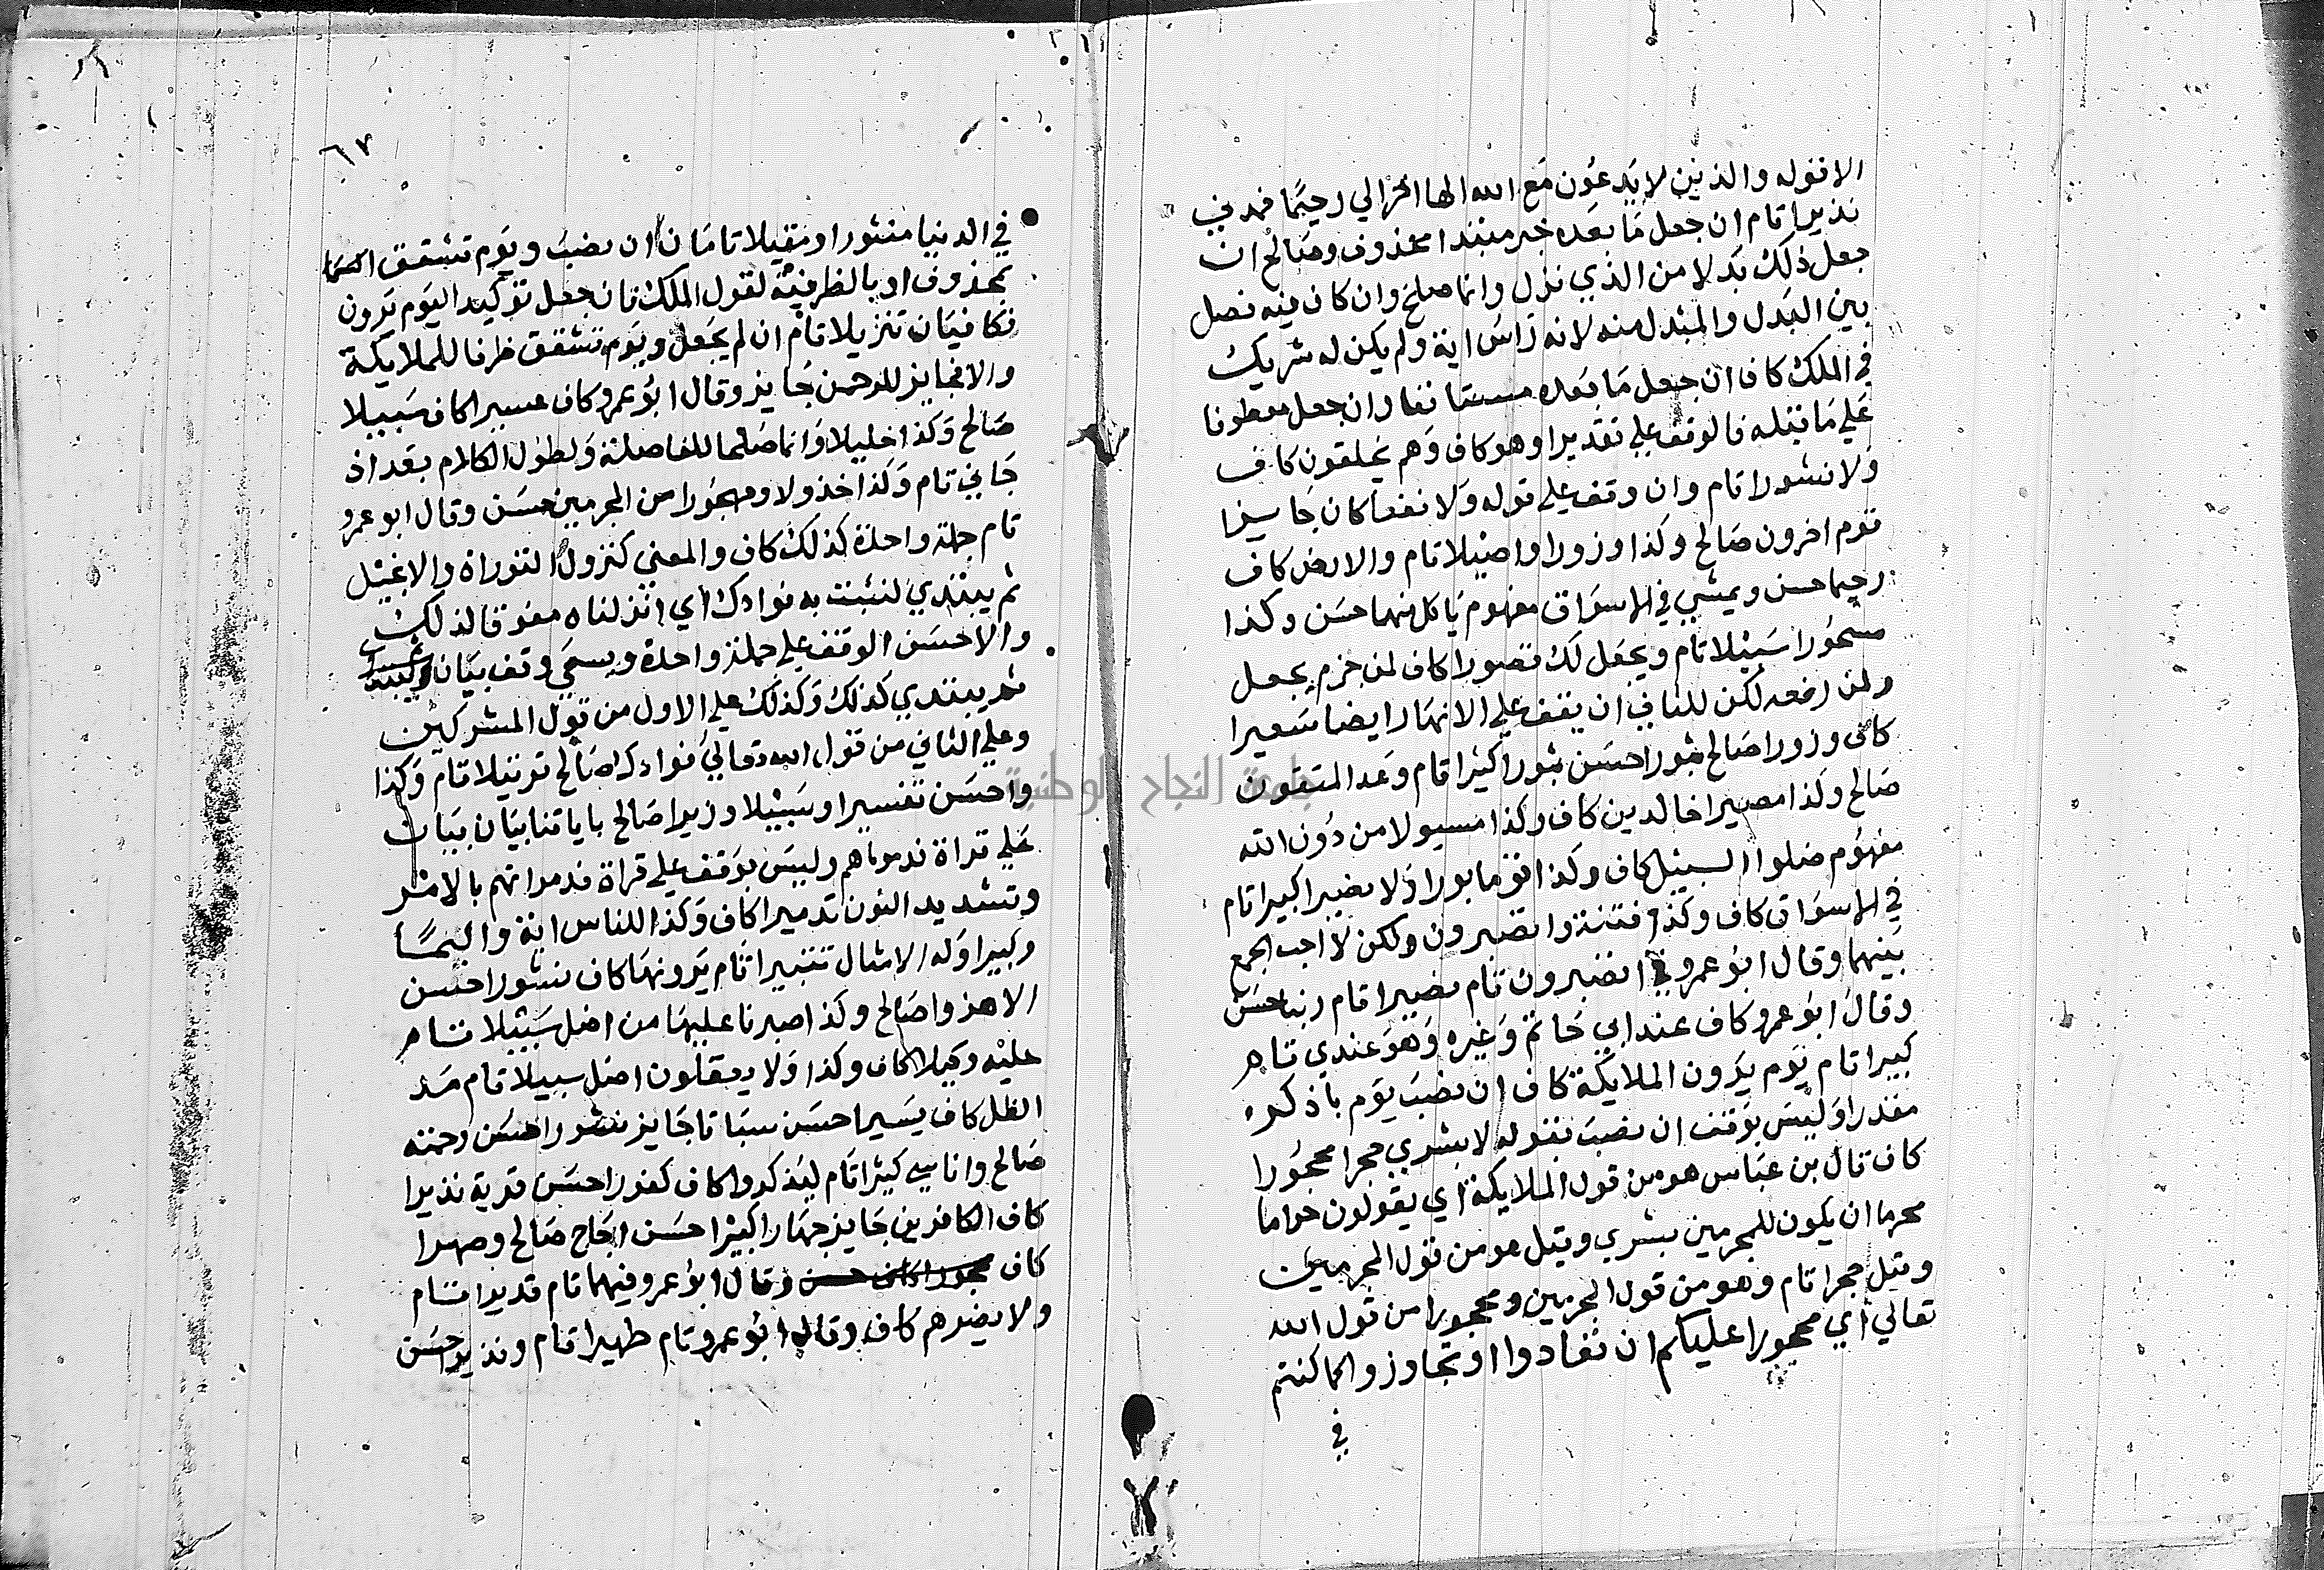 الا قوله والذين لا يدعون مع الله الها اخر الي رحيما فمدني
نذيرا تام ان جعل ما بعده خبر مبتدا محذوف وصالح ان
جعل ذلك بدلا من الذي نزل وانما صلح وان كان فيه فصل
بين البدل والمبدل منه لانه راس اية ولم يكن له شريك
في الملك كاف ان جعل ما بعده مستانفا وان جعل معطوفا
علي ما قبله فالوقف علي تقديرا وهو كاف وهم يخلقون كاف
ولا نشورا تام وان وقف علي قوله ولا نفعا كان جايزا
قوم اخرون صالح وكذا وزورا واصيلا تام والارض كاف
رحيما حسن ويمشي في الاسواق مفهوم ياكل منها حسن وكذا
مسحورا سبيلا تام ويجعل لك قصورا كاف لمن جزم يجعل
ولمن رفعه لكن للثاني ان يقف علي الانهار ايضا سعيرا
كاف وزورا صالح ثبورا حسن ثبورا كثيرا تام وعد المتقون
صالح وكذا مصيرا خالدين كاف وكذا مسيولا من دون الله
مفهوم ضلوا السبيل كاف وكذا قوما بورا ولا نصيرا كبيرا تام
في الاسواق كاف وكذا فتنة واتصبرون ولكن لا احب الجمع
بينهما وقال ابو عمرو في اتصبرون تام بصيرا تام ربنا حسن
وقال ابو عمرو كاف عند ابي حاتم وغيره وهو عندي تام
كبيرا تام يوم يرون الملايكة كاف ان نصب يوم باذكر
مقدرا وليس بوقف ان نصب بقوله لا بشري حجرا محجورا
كاف قال بن عباس هو من قول الملايكة اي يقولون حراما
محرما ان يكون للمجرمين بشري وقيل هو من قول المجرمين
وقيل حجرا تام وهو من قول المجرمين ومحجورا من قول الله
تعالي اي محجورا عليكم ان تعادوا او تجاوزوا لما كنتم
في
٦٧
في الدنيا منثورا ومقيلا تامان ان نصب ويوم تشقق السما
بمحذوف او بالظرفية لقول الملك فان جعل توكيد اليوم يرون
فكافيان تنزيلا تام ان لم يجعل ويوم تشقق ظرفا للملايكة
والا فجايز للرحمن جايز وقال ابو عمرو كاف عسيرا كاف سبيلا
صالح وكذا خليلا وانما صلحا للفاصلة ولطول الكلام بعد اذ
جاني تام وكذا خذولا ومهجورا من المجرمين حسن وقال ابو عمرو
تام جملة واحدة كذلك كاف والمعني كنزول التوراة والانجيل
ثم يبتدي لنثبت به فوادك اي انزلناه مفرقا لذلك
والاحسن الوقف علي جملة واحدة ويسمي وقف بيان
ثم يبتدي كذلك وكذلك علي الاول من قول المشركين
وعلي الثاني من قول الله تعالي فوادك صالح ترتيلا تام وكذا
واحسن تفسيرا وسبيلا وزيرا صالح باياتنا بيان بيان
علي قراة فدمرناهم وليس بوقف علي قراة فدمرانهم بالامر
وتشديد النون تدميرا كاف وكذا للناس اية واليما
وكبيرا وله الامثال تتبيرا تام يرونها كاف نشورا حسن
الا هزوا صالح وكذا صبرنا عليها من اضل سبيلا تام
عليه وكيلا كاف وكذا ولا يعقلون اضل سبيلا تام مد
الظل كاف يسيرا حسن سباتا جايز نشورا حسن رحمته
صالح واناسي كثيرا تام ليذكروا كاف كفورا حسن قرية نذيرا
كاف الكافرين جايز جهارا كبيرا حسن اجاج صالح وصهرا
كاف محجورا كاف حسن وقال ابو عمرو فيهما تام قديرا تام
ولا يضرهم كاف وقال ابو عمرو تام ظهيرا تام ونذيرا حسن
جامعة النجاح الوطنية